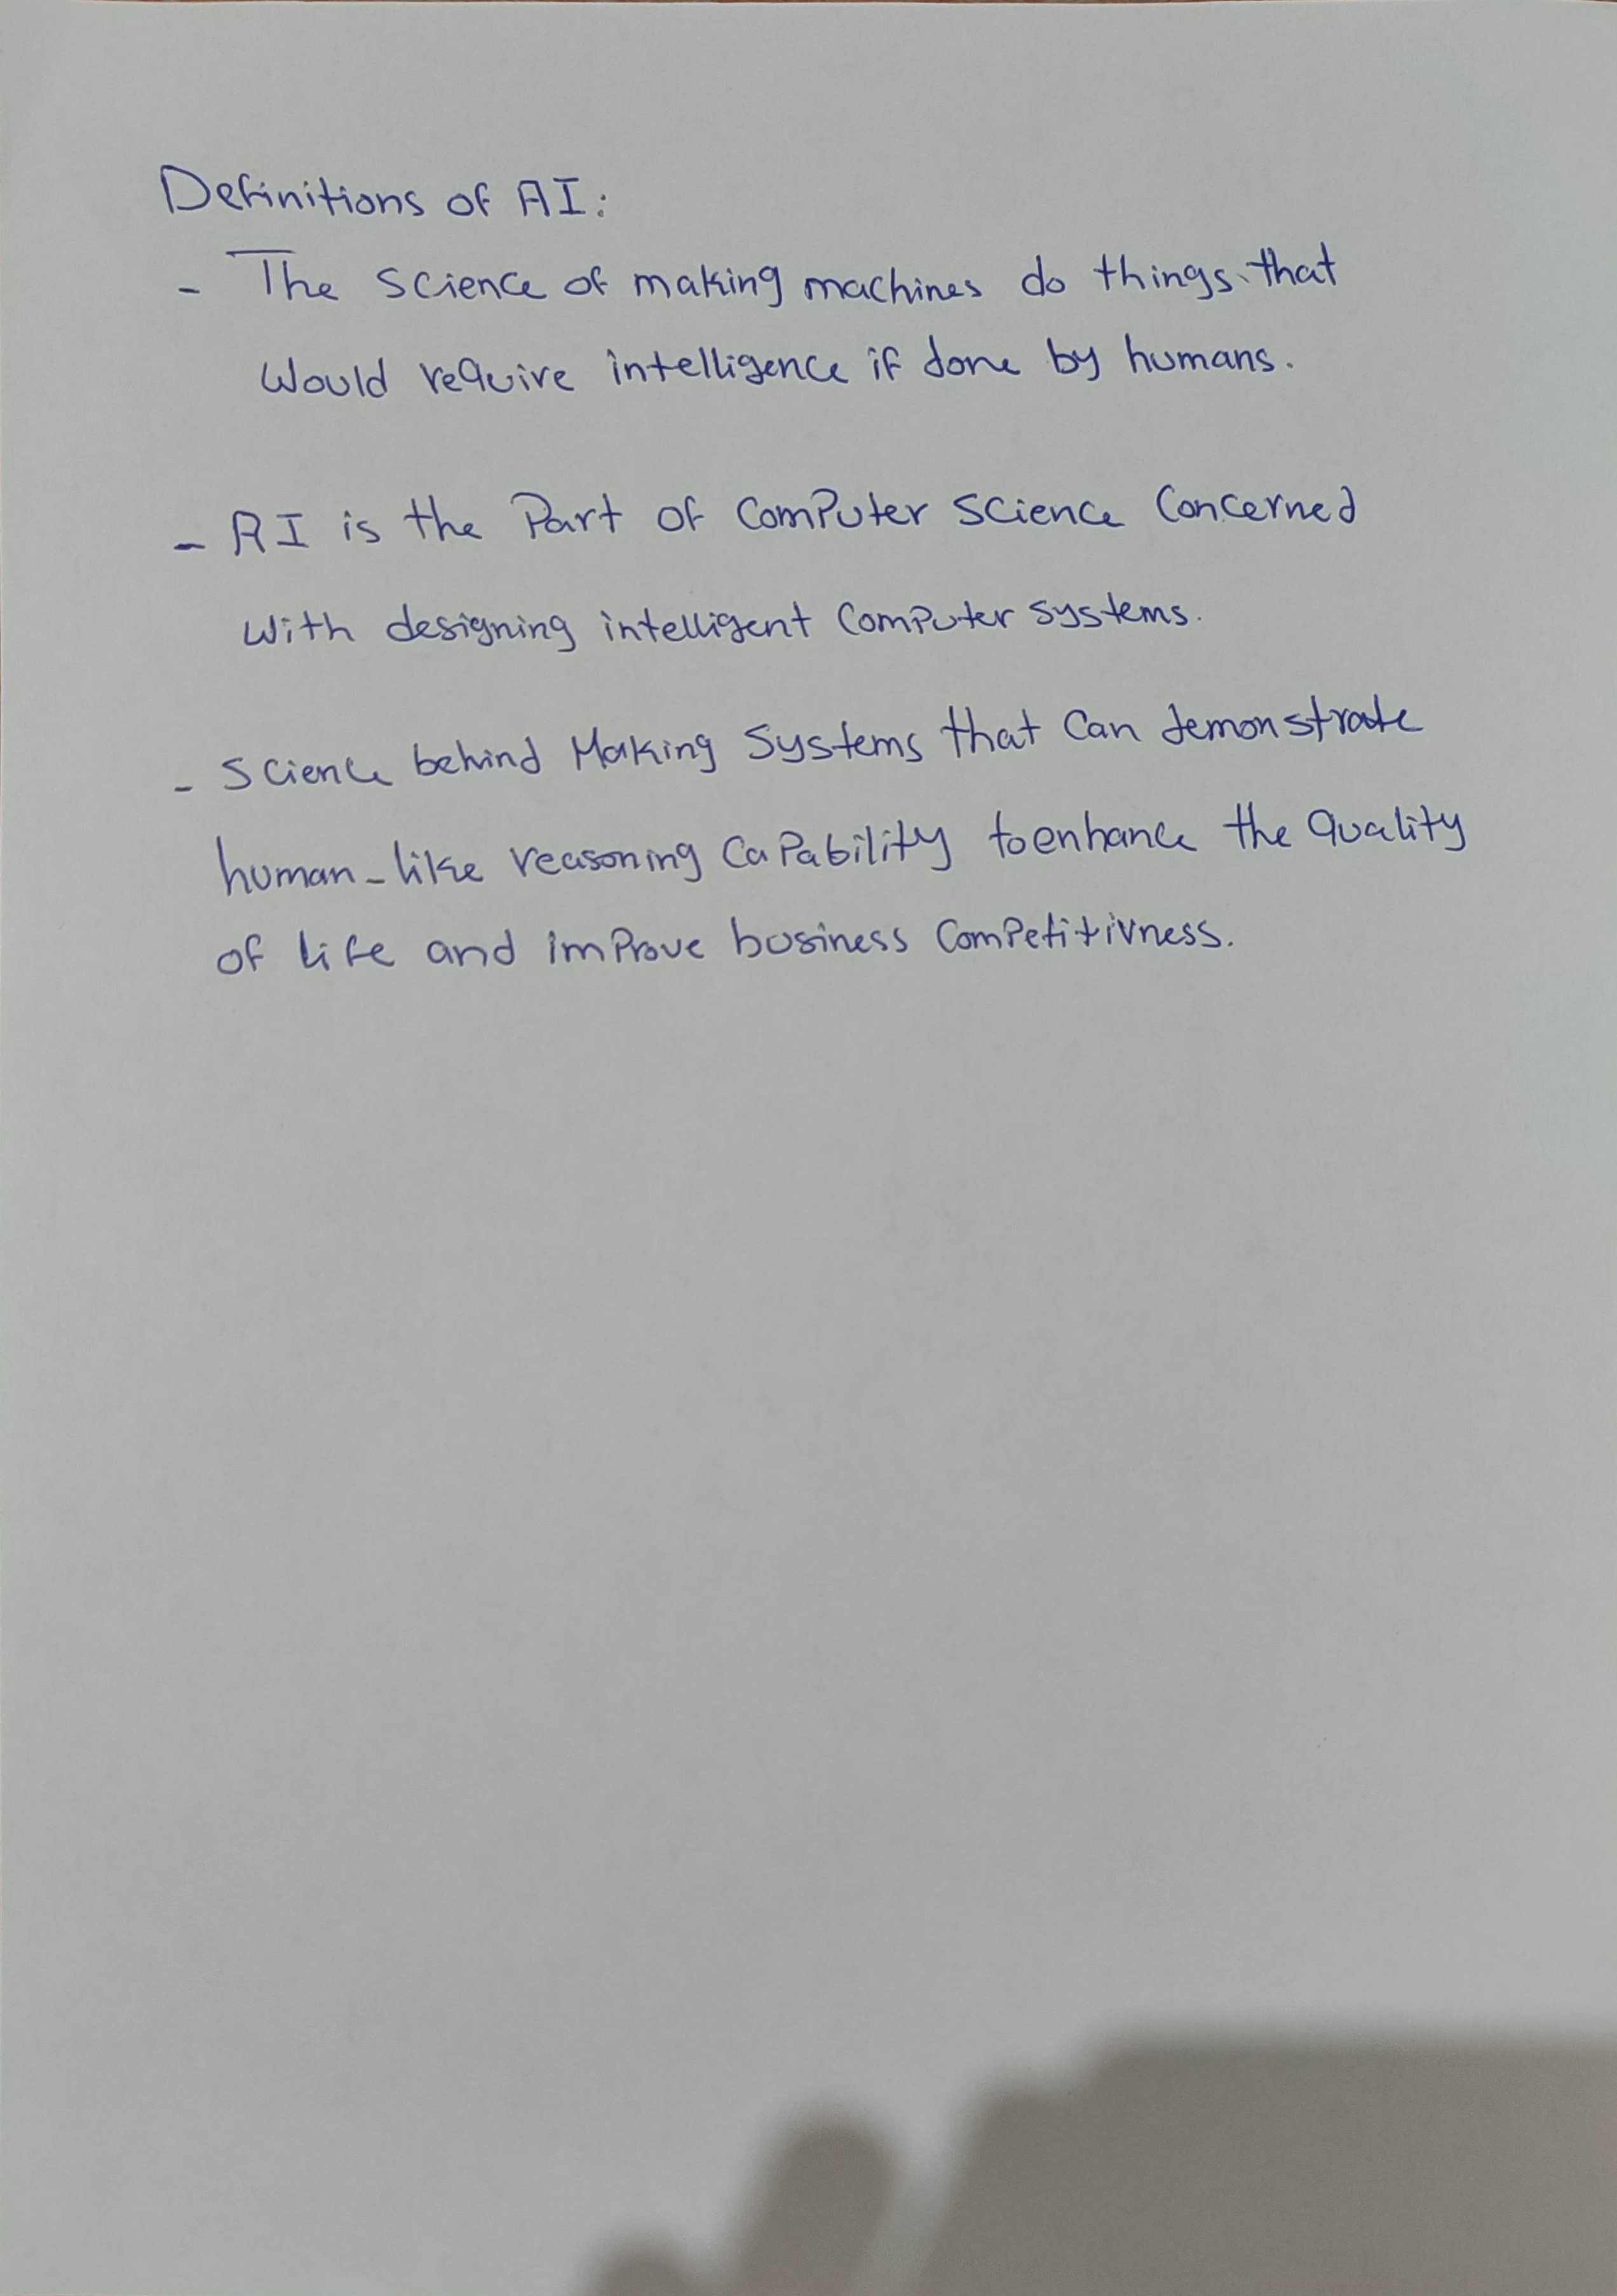 Definitions of AI:
- The science of making machines do things that
would require intelligence if done by humans.
- AI is the Part of Computer Science Concerned
with designing intelligent Computer systems.
- Science behind Making Systems that Can demonstrate
human-like reasoning Capability to enhance the Quality
of life and improve business Competitivness.